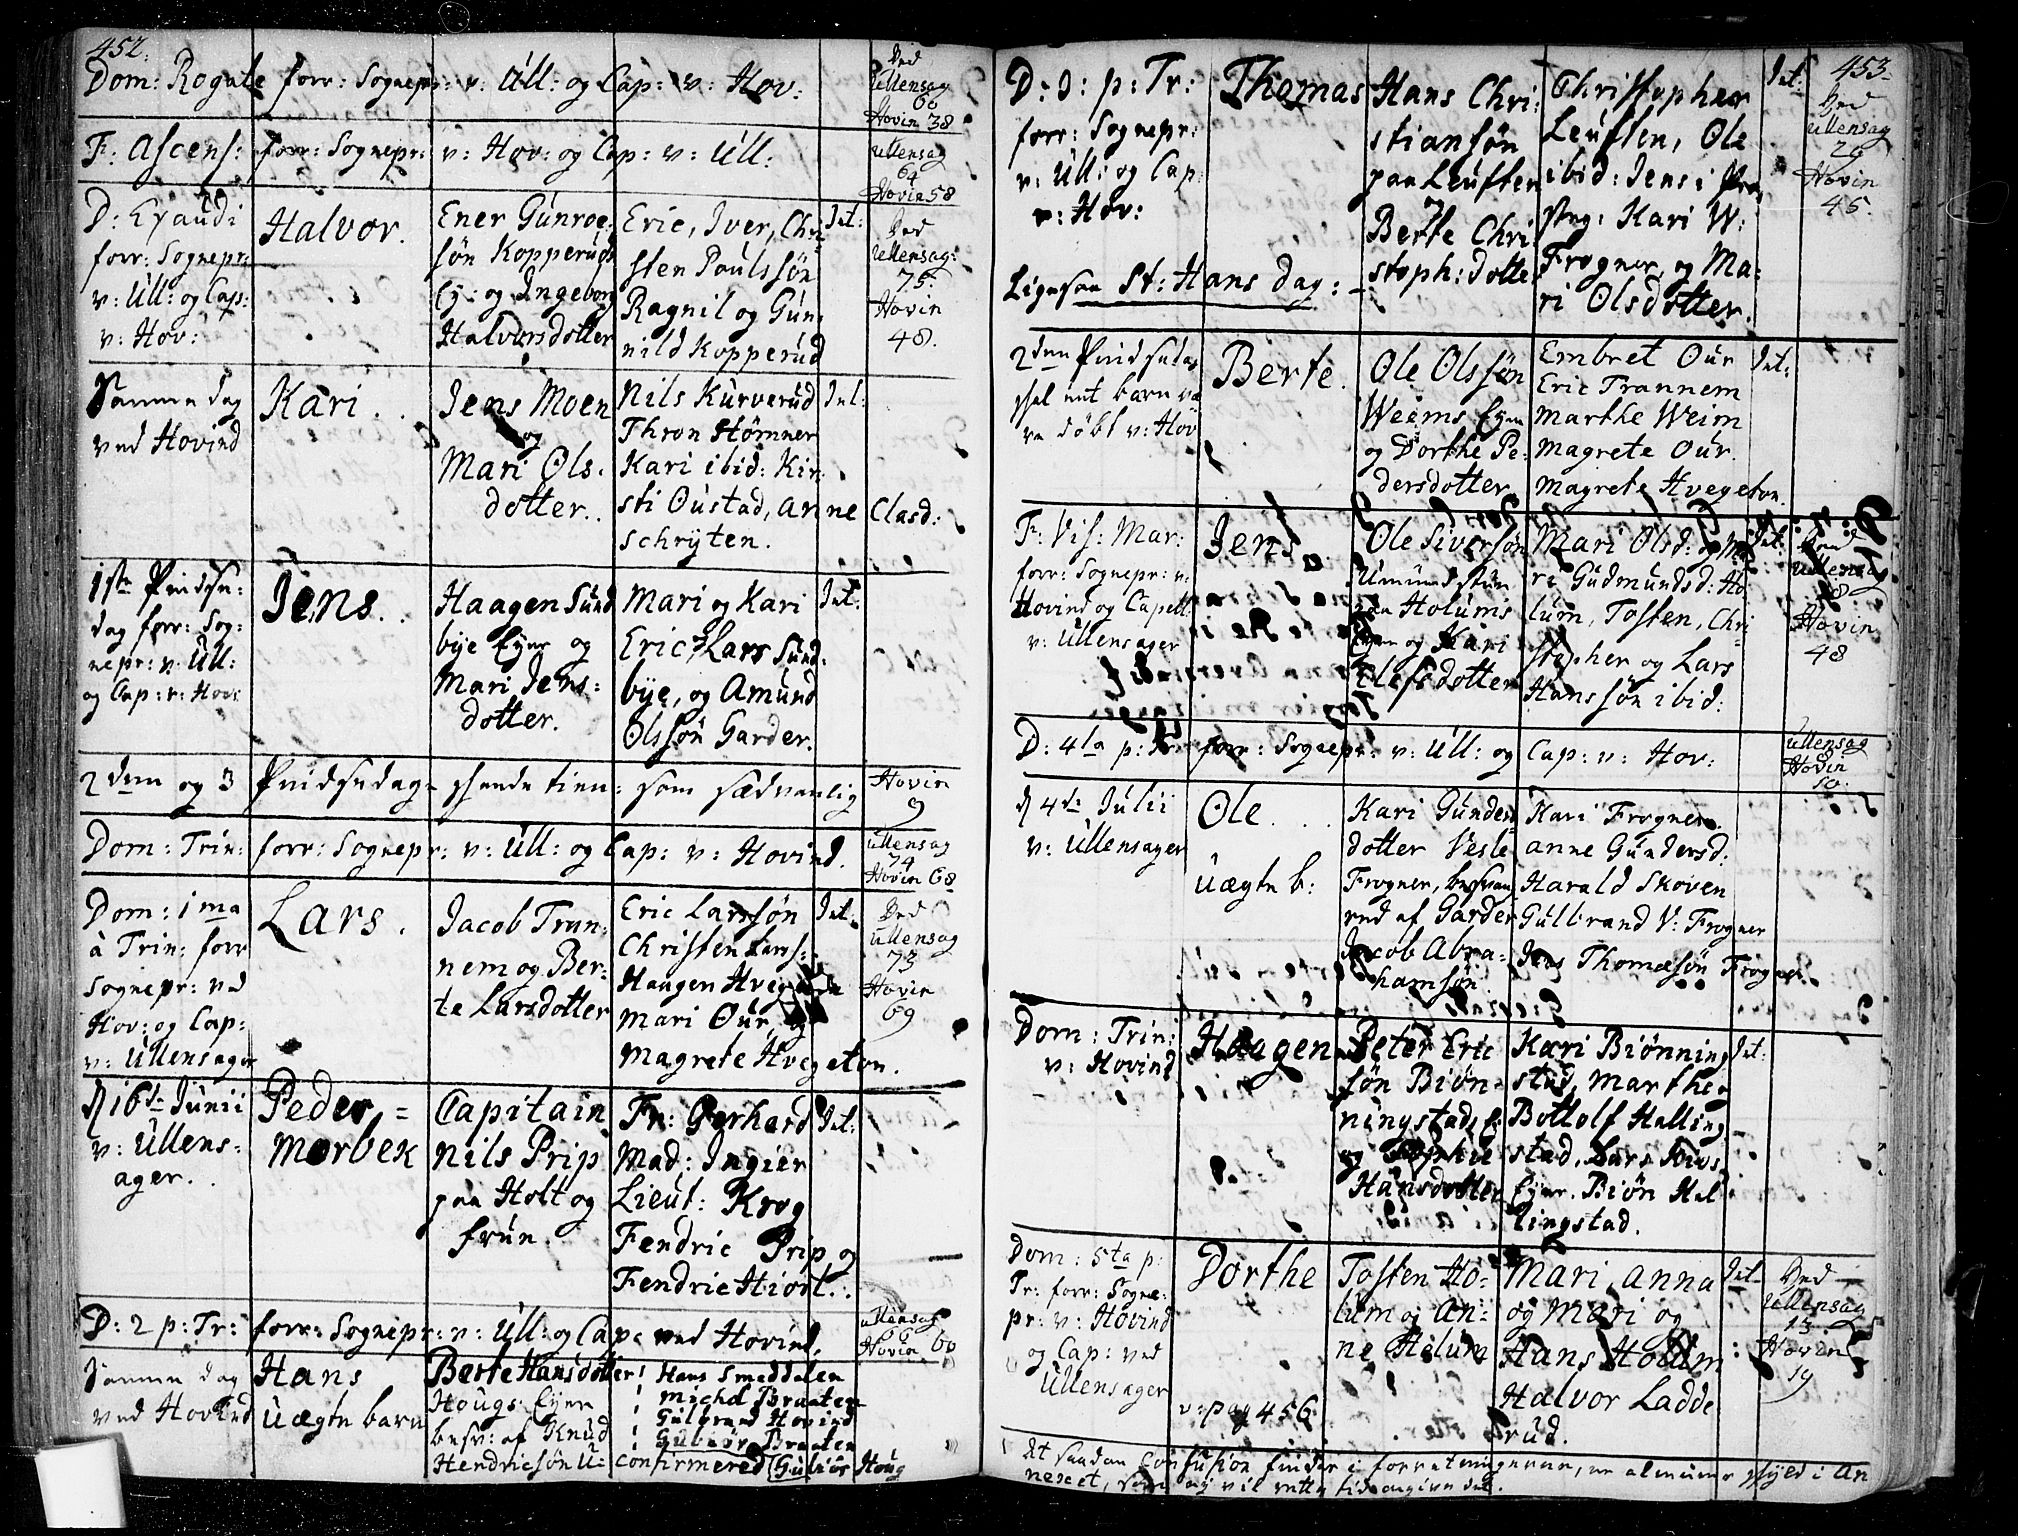 452.
Dom: Rogate forr: Sognepr: v: Ull: og Cap: v: Hov:
Ved
Ullensag
60
Hovin 38
F: Ascens: forr: Sognepr: v: Hov: og Cap: v: Ull:
Ullensag
64
Hovin 58
D: Exaudi
forr: Sognepr:
v: Ull: og Cap:
v: Hov:
Halvor.
Ener Gunroe-
søn Kopperuds
Ey: og Ingeborg
Halvorsdotter
Eric, Iver, Chri
sten Poulssøn
Ragnil og Gun-
nild Kopperud
Int:
Ved
Ullensag:
75.
Hovin
48.
Samme dag
ved Hovind
Kari.
Jens Moen
og
Mari Ols-
dotter.
Nils Kurverud
Thron Hømner
Kari ibid: Kir-
sti Oustad, Anne Clasd:
schryten.
Int:
1ste Pindse-
dag forr: Sog-
nepr: v: Ull:
og Cap: v: Hov:
Jens.
Haagen Sund
bye Eyer og
Mari Jens-
dotter.
Mari og Kari
Eric, Lars Sund-
bye, og Amund
Olssøn Garder.
Int:
2den og 3 Pindsedag som sædvanlig
Hovin
9
Dom: Trin: forr: Sognepr: v: Ull: og Cap: v: Hovind.
Ullensag
74
Hovin 68
Dom: 1ma
à Trin: forr
Sognepr: ved
Hov: og Cap:
v: Ullensager
Lars.
Jacob Tran-
nem og Ber-
te Larsdotter
Eric Larssøn
Christen Larss:
Haagen
Mari Our, og
Magrete Hvegeton.
Int:
Ved
Ullensag
73
Hovin
69
d 16de Junii
v: Ullens-
ager.
Peder
Morbek
Capitain
Nils Prip
paa Holt og
frun.
Fr: Gerhard
Mad: Ingier
Lieut: Krog
Fendric Prip og
Fendric Hiort.
Int:
D: 2 p: Tr: forr: Sognepr: v: Ull: og Cap: ved Hovind.
Ullensag
66
Hovin 60
Samme dag
ved Hovind
Hans
Uægte barn
Berte Hansdotter
Hougs Eyer
besv: af Knud
Hendricsøn U-confirmered
Hans Smeddalen
Michel Braaten
Gulbrand Hovind
Gubiør Braaten
Gubiør Houg
453.
D: 3: p: Tr:
forr: Sognepr:
v: Ull: og Cap:
v: Hov:
Ligesaa St: Hans dag:
Thomas
Hans Chri-
stiansøn
paa Leuften
Berte Chri
stoph: dotter
Christopher
Leuften, Ole
ibid: Jens i
Kari W:
Frogner, og Ma-
ri Olsdotter.
Int:
Ved
Ullensag
29
Hovin
45.
2den Pindsedag
skal eet barn væ
re døbt v: Hov
Berte.
Ole Olssøn
Weems Eyer
og Dorthe Pe-
dersdotter
Embret Our
Eric Trannem
Marthe Weim
Magrete Our.
Magrete Hvegeton
Int:
F: Vis: Mar:
forr: Sognepr: v:
Hovind og Capell:
v: Ullensager
Jens.
Ole Siversøn
paa Holums
Eyer og Kari
Olefsdotter
Mari Olsd: og Ma
ri Gudmundsd: Ho
lum, Tosten, Chri-
stopher og Lars
Hanssøn ibid:
Int:
Ved
Ullensag
Hovin
48
D: 4ta p: Tr: forr: Sognepr: v: Ull: og Cap: v: Hov:
Ullensag
Hovin
50.
d 4de Julii
v: Ullensager
Ole.
Uægte b:
Kari Gunders
dotter Vesle
Frogner, besvan
red af Garder
Jacob Abra-
hamsøn.
Kari Frogner.
Anne Gundersd:
Harald Skoven
Gulbrand V: Frogner
Jens Thomesøn Frogner.
Dom: Trin:
v: Hovind
Haagen
Peter Eric
søn Biøn-
ningstad E:
og Sophie
Hansdotter
Kari Biønning
stad, Marthe,
Bottolf Halling
stad, Lars
Eyer. Biøn Hal
lingstad.
Int:
Dom: 5ta p:
Tr: forr: Sogne-
pr: v: Hovind
og Cap: ved
Ullensager
Dorthe
v: pag 456
Tosten Ho-
lum og An-
ne Holum
Mari, Anna
og Mari og
Hans Holum
Halvor Ladde
rud.
Int-
Ved
Ullensag
13
Hovin
19
At saadan Confusion findes i forretningerne, er